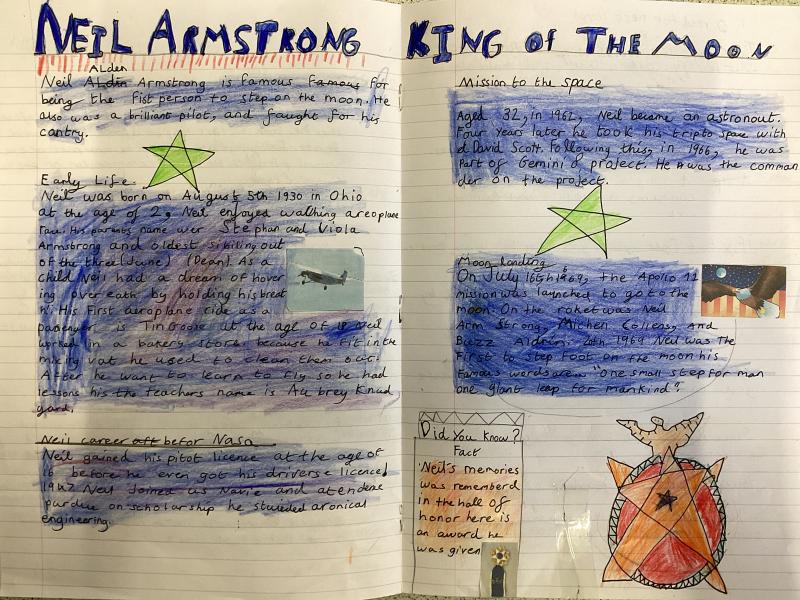 NEIL ARMSTRONG
KING of THE MOON
Alden
Neil Aldin Armstrong is famous famous for
being the Fist person to step on the moon. He
also was a brilliant pilot, and faught for his
cantry.
Early Life
Neil was born on August 5th 1930 in Ohio
at the age of 2, Neil enjoyed watching areoplane
race. His parents name wer Stephan and Viola
Armstrong and oldest sibiling out
of the three (June) (Dean). As a
child Neil had a dream of hover
ing over eath by holding his breat
h. His First aeroplane ride as a
passenger is Tin Goose at the age of Neil
worked in a bakery store because he fit in the
mixing vat he used to clean them out.
After he want to learn to fly so he had
lessons his the teachers name is Aubrey Knud
gard.
Neil career aft befor Nasa
Neil gained his pitot licence at the age of
16 before he even got his driverse licence
1947 Neil Joined us Navie and atendene
purdue on scholarship he studeded aronical
engineering.
Mission to the space
Aged 32, in 1962, Neil became an astronout.
Four years later he took his trip to space with
d David Scott. Following this, in 1966, he was
part of Gemini 8 project. He was the comman
der on the project.
Moon landing
On July 16th 1969, the Apollo 11
mission was launched to go to the
moon. On the roket was Neil
Arm Strong, Michen Collens, and
Buzz Aldrin. 20th 1969 Neil was The
First to step foot on the moon his
Famous words are "One small step for man
one giant leap for mankind".
Did you know?
Fact
Neil's memories
was rememberd
in the hall of
honor here is
an award he
was given